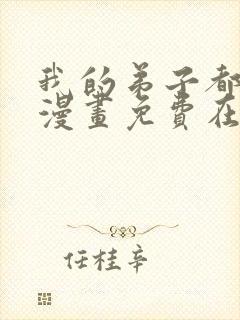 我的弟子都
漫畫免費在
任桂辛